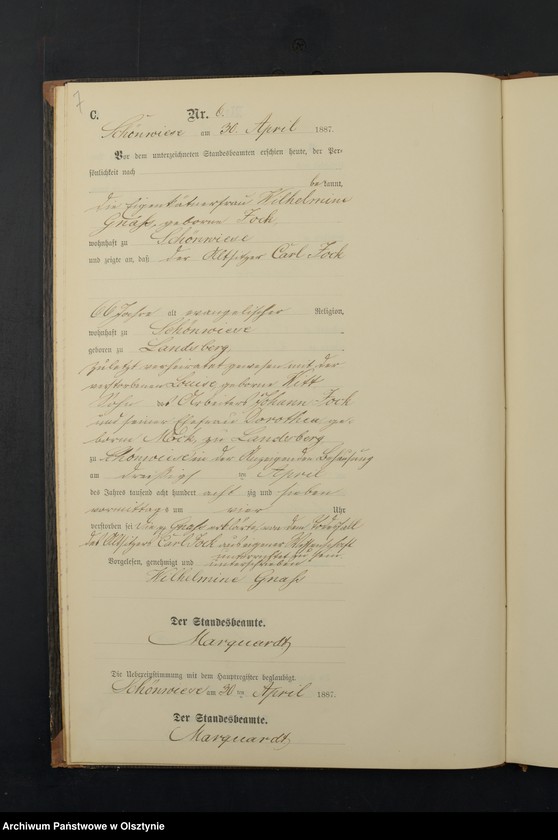 7
C.
Nr. 6.
Schönwiese am 30. April 1887.
Vor dem unterzeichneten Standesbeamten erschien heute, der Per-
sönlichkeit nach
bekannt,
die Eigenkätnerfrau Wilhelmine
Gnaß, geborne Fock,
wohnhaft zu Schönwiese
und zeigte an, daß der Altsitzer Carl Fock
66 Jahre alt evangelischer Religion,
wohnhaft zu Schönwiese
geboren zu Landsberg,
zuletzt verheirathet gewesen mit der
verstorbenen Louise geborne Witt
Sohn des Arbeiters Johann Fock
und seiner Ehefrau Dorothea ge-
borne Möck, zu Landsberg
zu Schönwiese in der Anzeigenden Behausung
am dreißigsten April
des Jahres tausend acht hundert acht zig und sieben
vormittags um vier Uhr
verstorben sei Die p. Gnaß erklärte, von dem Todesfall
des Altsitzers Carl Fock aus eigener Wissenschaft
unterrichtet zu sein
Vorgelesen, genehmigt und unterschrieben
Wilhelmine Gnaß
Der Standesbeamte.
Marquardt
Die Uebereinstimmung mit dem Hauptregister beglaubigt.
Schönwiese am 30 ten April 1887.
Der Standesbeamte.
Marquardt
Archiwum Państwowe w Olsztynie